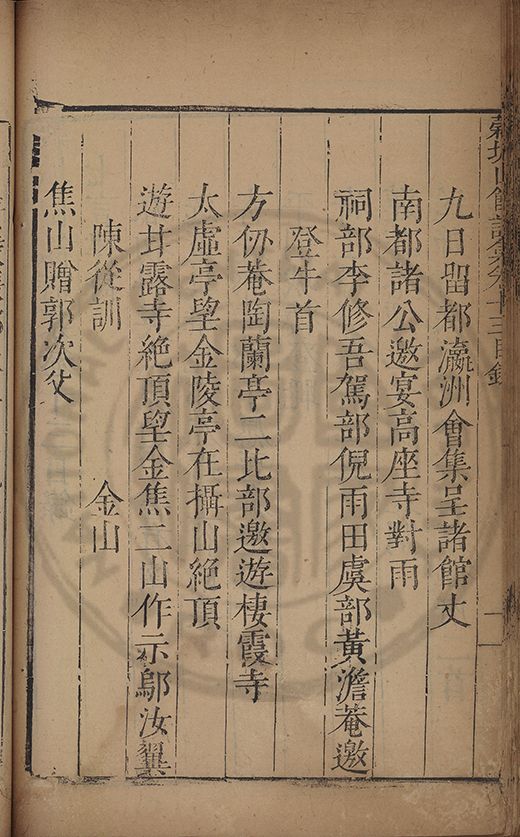 九日留都瀛洲會集呈諸館丈
南都諸公邀宴高座寺對雨
祠部李修吾駕部倪雨田虞部黃澹菴邀
登牛首
方仞菴陶蘭亭二比部邀遊棲霞寺
太虛亭望金陵亭在攝山絕頂
遊甘露寺絕頂望金焦二山作示鄔汝翼
陳從訓
金山
焦山贈郭次父